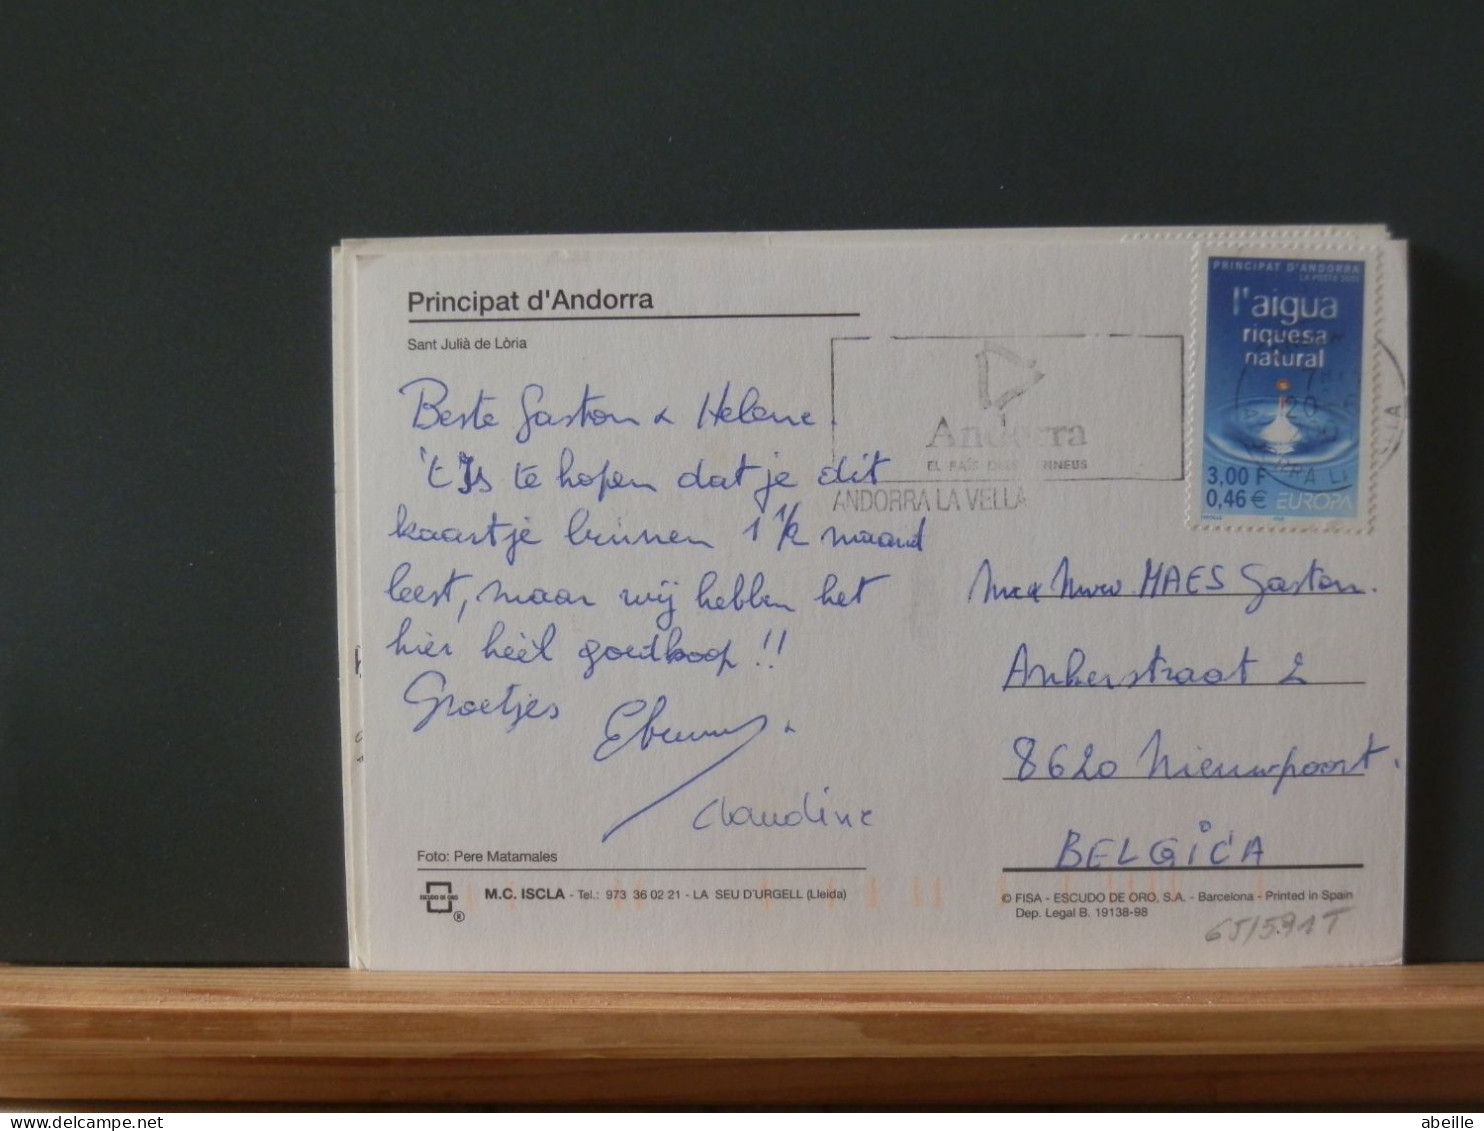 Principat d'Andorra
Sant Julià de Lòria
Beste Gaston & Helene.
't Is te hopen dat je dit
kaartje binnen 1 1/2 maand
leest, maar wij hebben het
hier héél goedkoop !!
Groetjes
&
Claudine
Foto: Pere Matamales
ESCUDO DE ORO
®
M.C. ISCLA - Tel.: 973 36 02 21 - LA SEU D'URGELL (Lleida)
PRINCIPAT D'ANDORRA
LA POSTE 2001
l'aigua
riquesa
natural
3,00 F
0,46 €
EUROPA
Andorra
EL PAÍS DELS PIRINEUS
ANDORRA LA VELLA
MAES Gaston.
Ankerstraat 2
8620 Nieuwpoort.
BELGICA
© FISA - ESCUDO DE ORO, S.A. - Barcelona - Printed in Spain
Dep. Legal B. 19138-98
65/591T
abeille